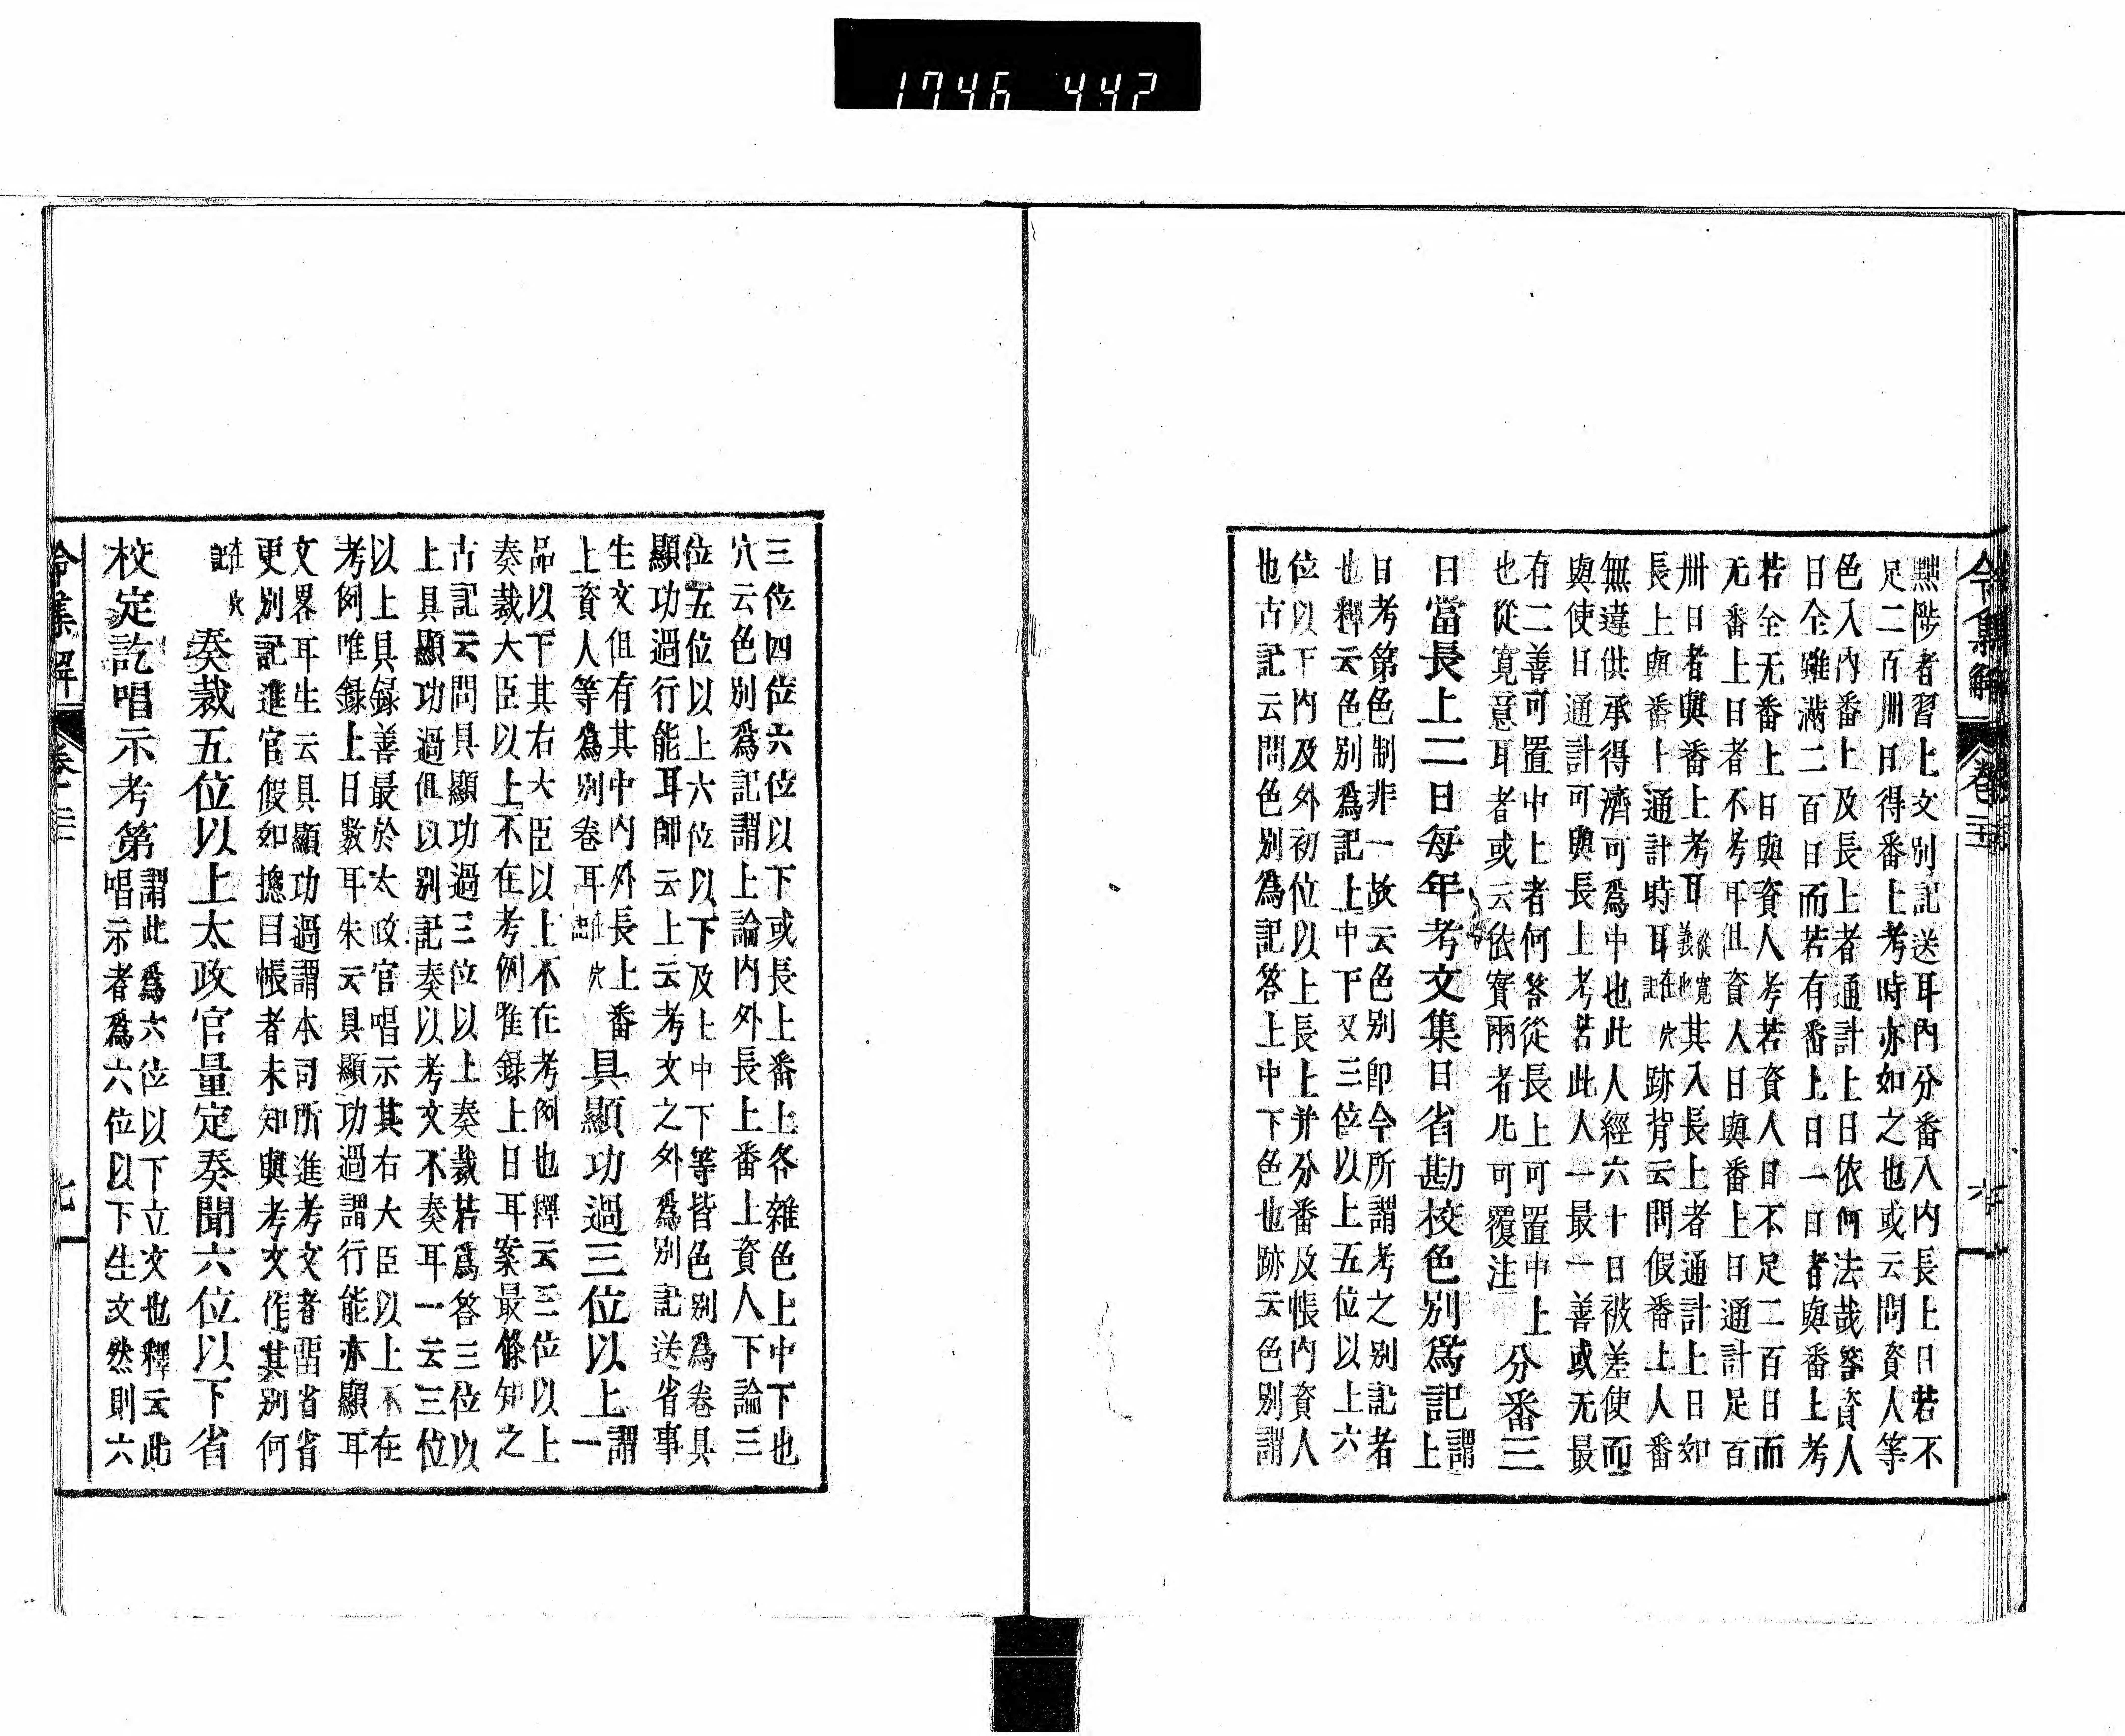 1746 442
令集解 卷二十二 六
黜陟者習上文別記送耳內分番入內長上日若不
足二百卌日得番上考時亦如之也或云問資人等
色入內番上及長上者通計上日依何法哉答資人
日全雖滿二百日而若有番上日一日者與番上考
若全无番上日與資人考若資人日不足二百日而
无番上日者不考耳但資人日與番上日通計足百
卅日者與番上考耳從寬義也其入長上者通計上日如
長上與番上通計時耳在穴記跡背云問假番上人番
無違供承得濟可爲中也此人經六十日被差使而
與使日通計可與長上考若此人一最一善或无最
有二善可置中上者何答從長上可置中上
也從寬意耳者或云依實兩者凡可覆注
分番三
日當長上二日每年考文集日省勘校色別爲記謂上
日考第色制非一故云色別即令所謂考之別記者
也釋云色別爲記上中下又三位以上五位以上六
位以下內及外初位以上長上并分番及帳內資人
也古記云問色別爲記答上中下色也跡云色別謂
三位四位六位以下或長上番上各雜色上中下也
穴云色別爲記謂上論內外長上番上資人下論三
位五位以上六位以下及上中下等皆色別爲卷具
顯功過行能耳師云上云考文之外爲別記送省事
生文但有其中內外長上番
上資人等爲別卷耳在穴記
具顯功過三位以上謂一
品以下其右大臣以上不在考例也釋云三位以上
奏裁大臣以上不在考例唯錄上日耳案最條知之
古記云問具顯功過三位以上奏裁若爲答三位以
上具顯功過但以別記奏以考文不奏耳一云三位
以上具錄善最於太政官唱示其右大臣以上不在
考例唯錄上日數耳朱云具顯功過謂行能亦顯耳
文畧耳生云具顯功過謂本司所進考文者留省省
更別記進官假如摠目帳者未知與考文作其別何
在穴記
奏裁五位以上太政官量定奏聞六位以下省
校定訖唱示考第謂此爲六位以下立文也釋云此
唱示者爲六位以下生文然則六
令集解 卷二十二 七